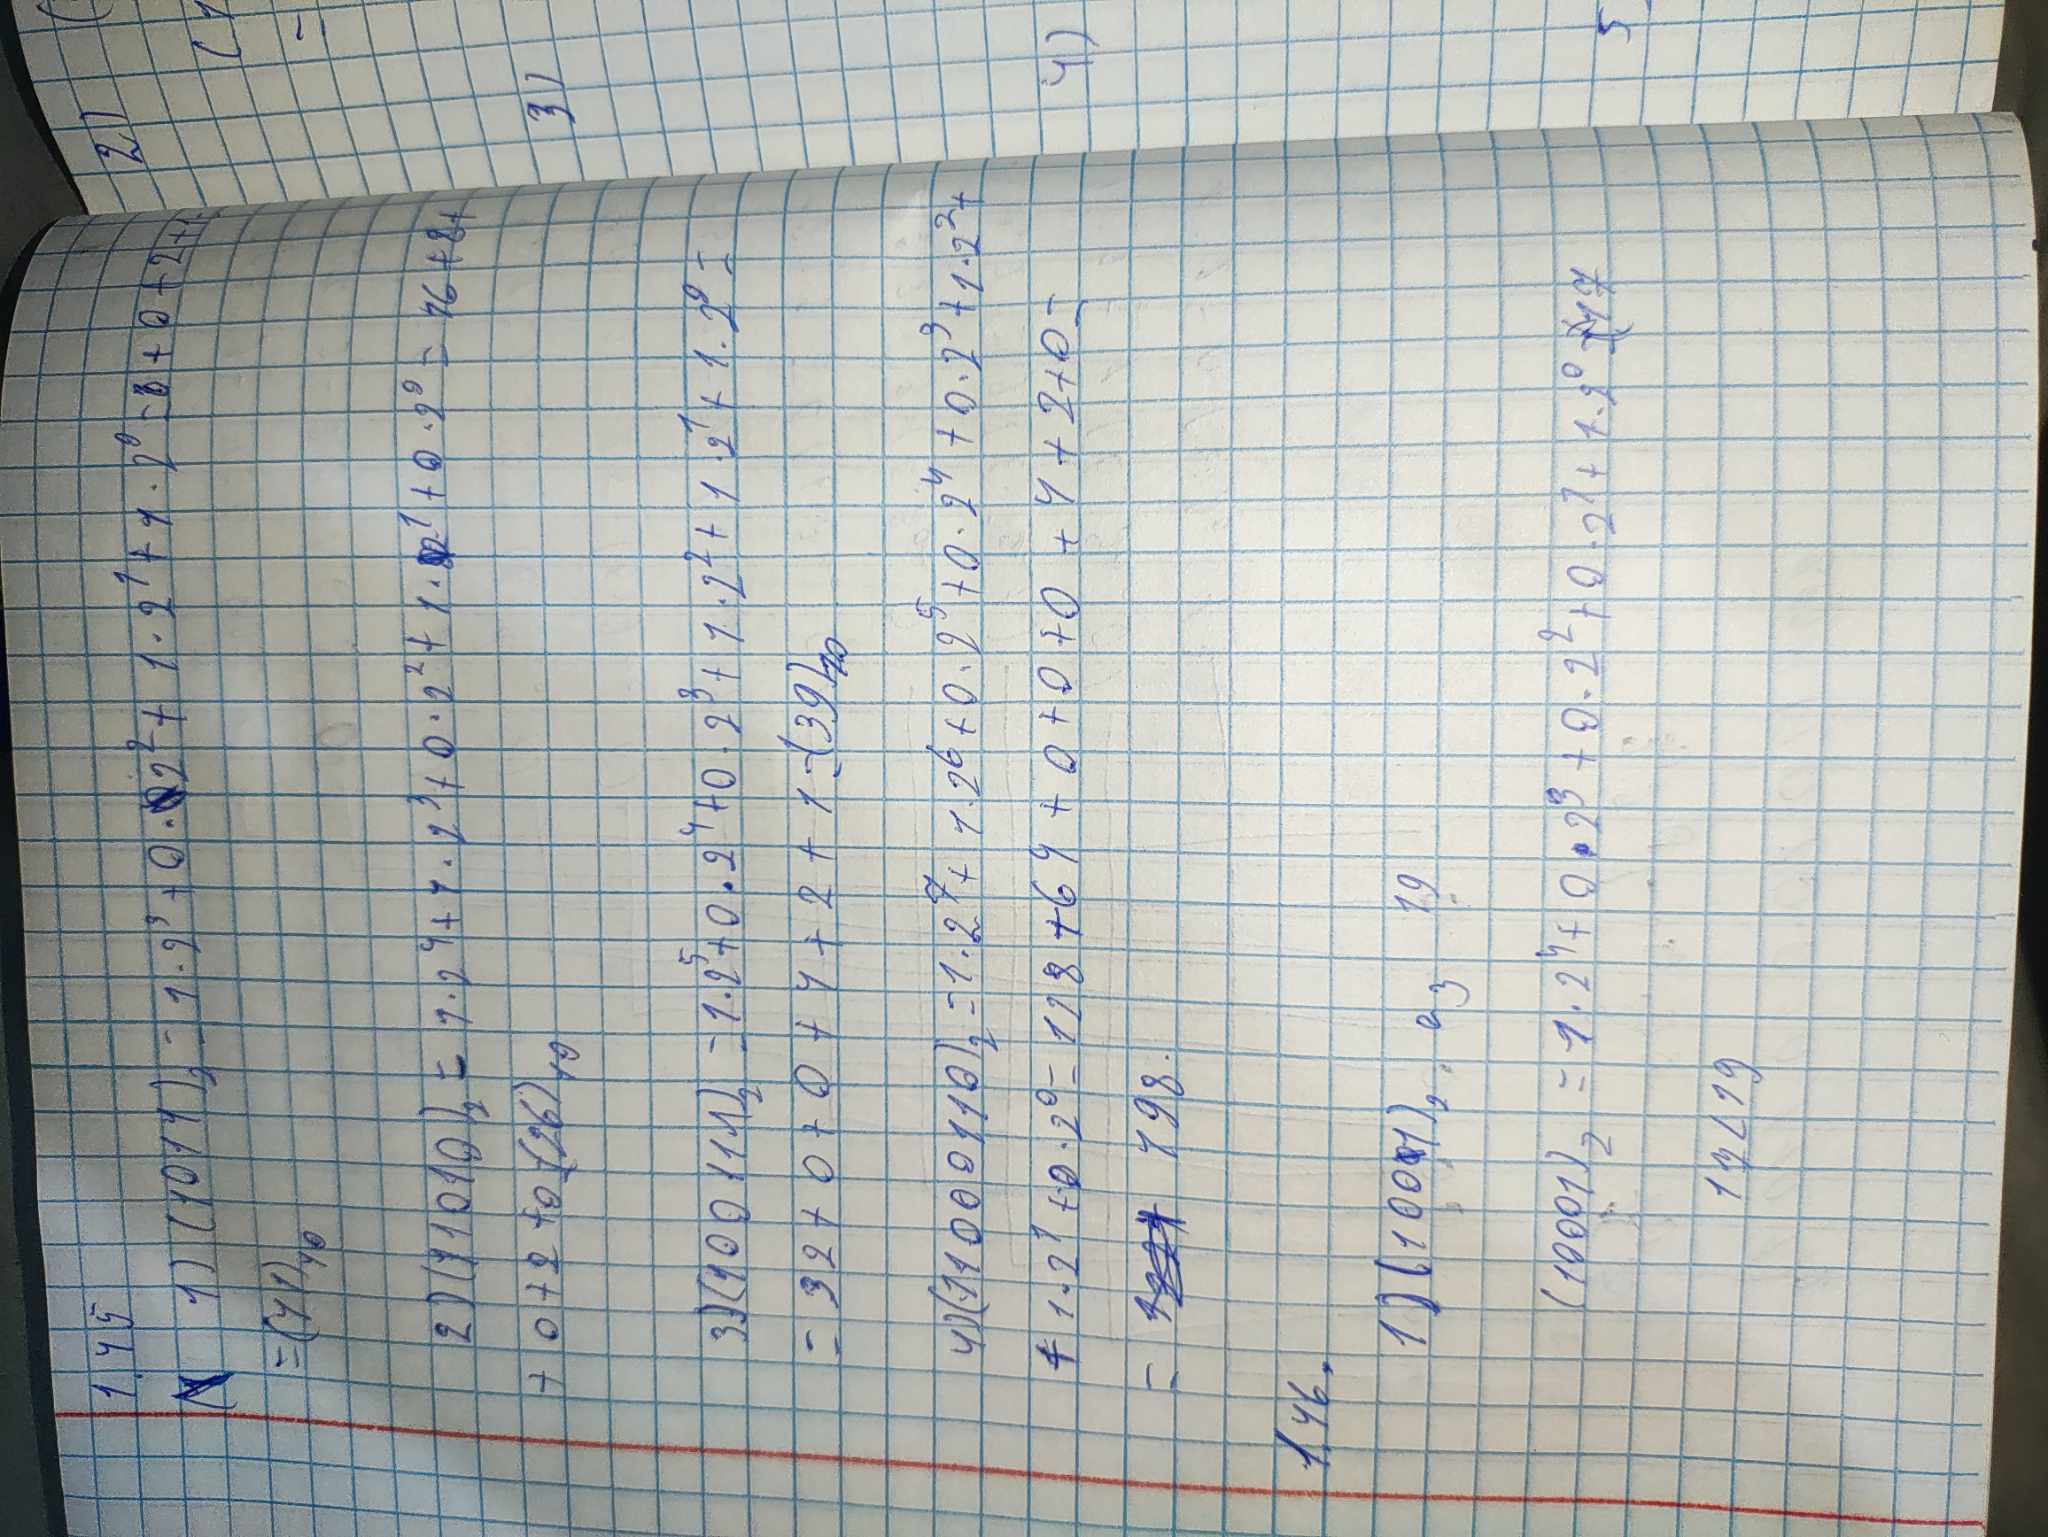 1.45
1) (1011)₂ = 1·2³+0·2²+1·2¹+1·2⁰=8+0+2+1
=(11)₁₀
2) (11010)₂ = 1·2⁴+1·2³+0·2²+1·2¹+0·2⁰ = 16+8+
+0+2+0=(26)₁₀
3) (100111)₂ = 1·2⁵+0·2⁴+0·2³+1·2²+1·2¹+1·2⁰=
= 32+0+0+4+2+1=(39)₁₀
4) (11000110)₂ = 1·2⁷+1·2⁶+0·2⁵+0·2⁴+0·2³+1·2²+
+1·2¹+0·2⁰=128+64+0+0+0+4+2+0=
= 198.
1.46.
1) (10001)₂ 19
(10001)₂ = 1·2⁴+0·2³+0·2²+0·2¹+1·2⁰ 17
17<19
2)
3)
4)
5